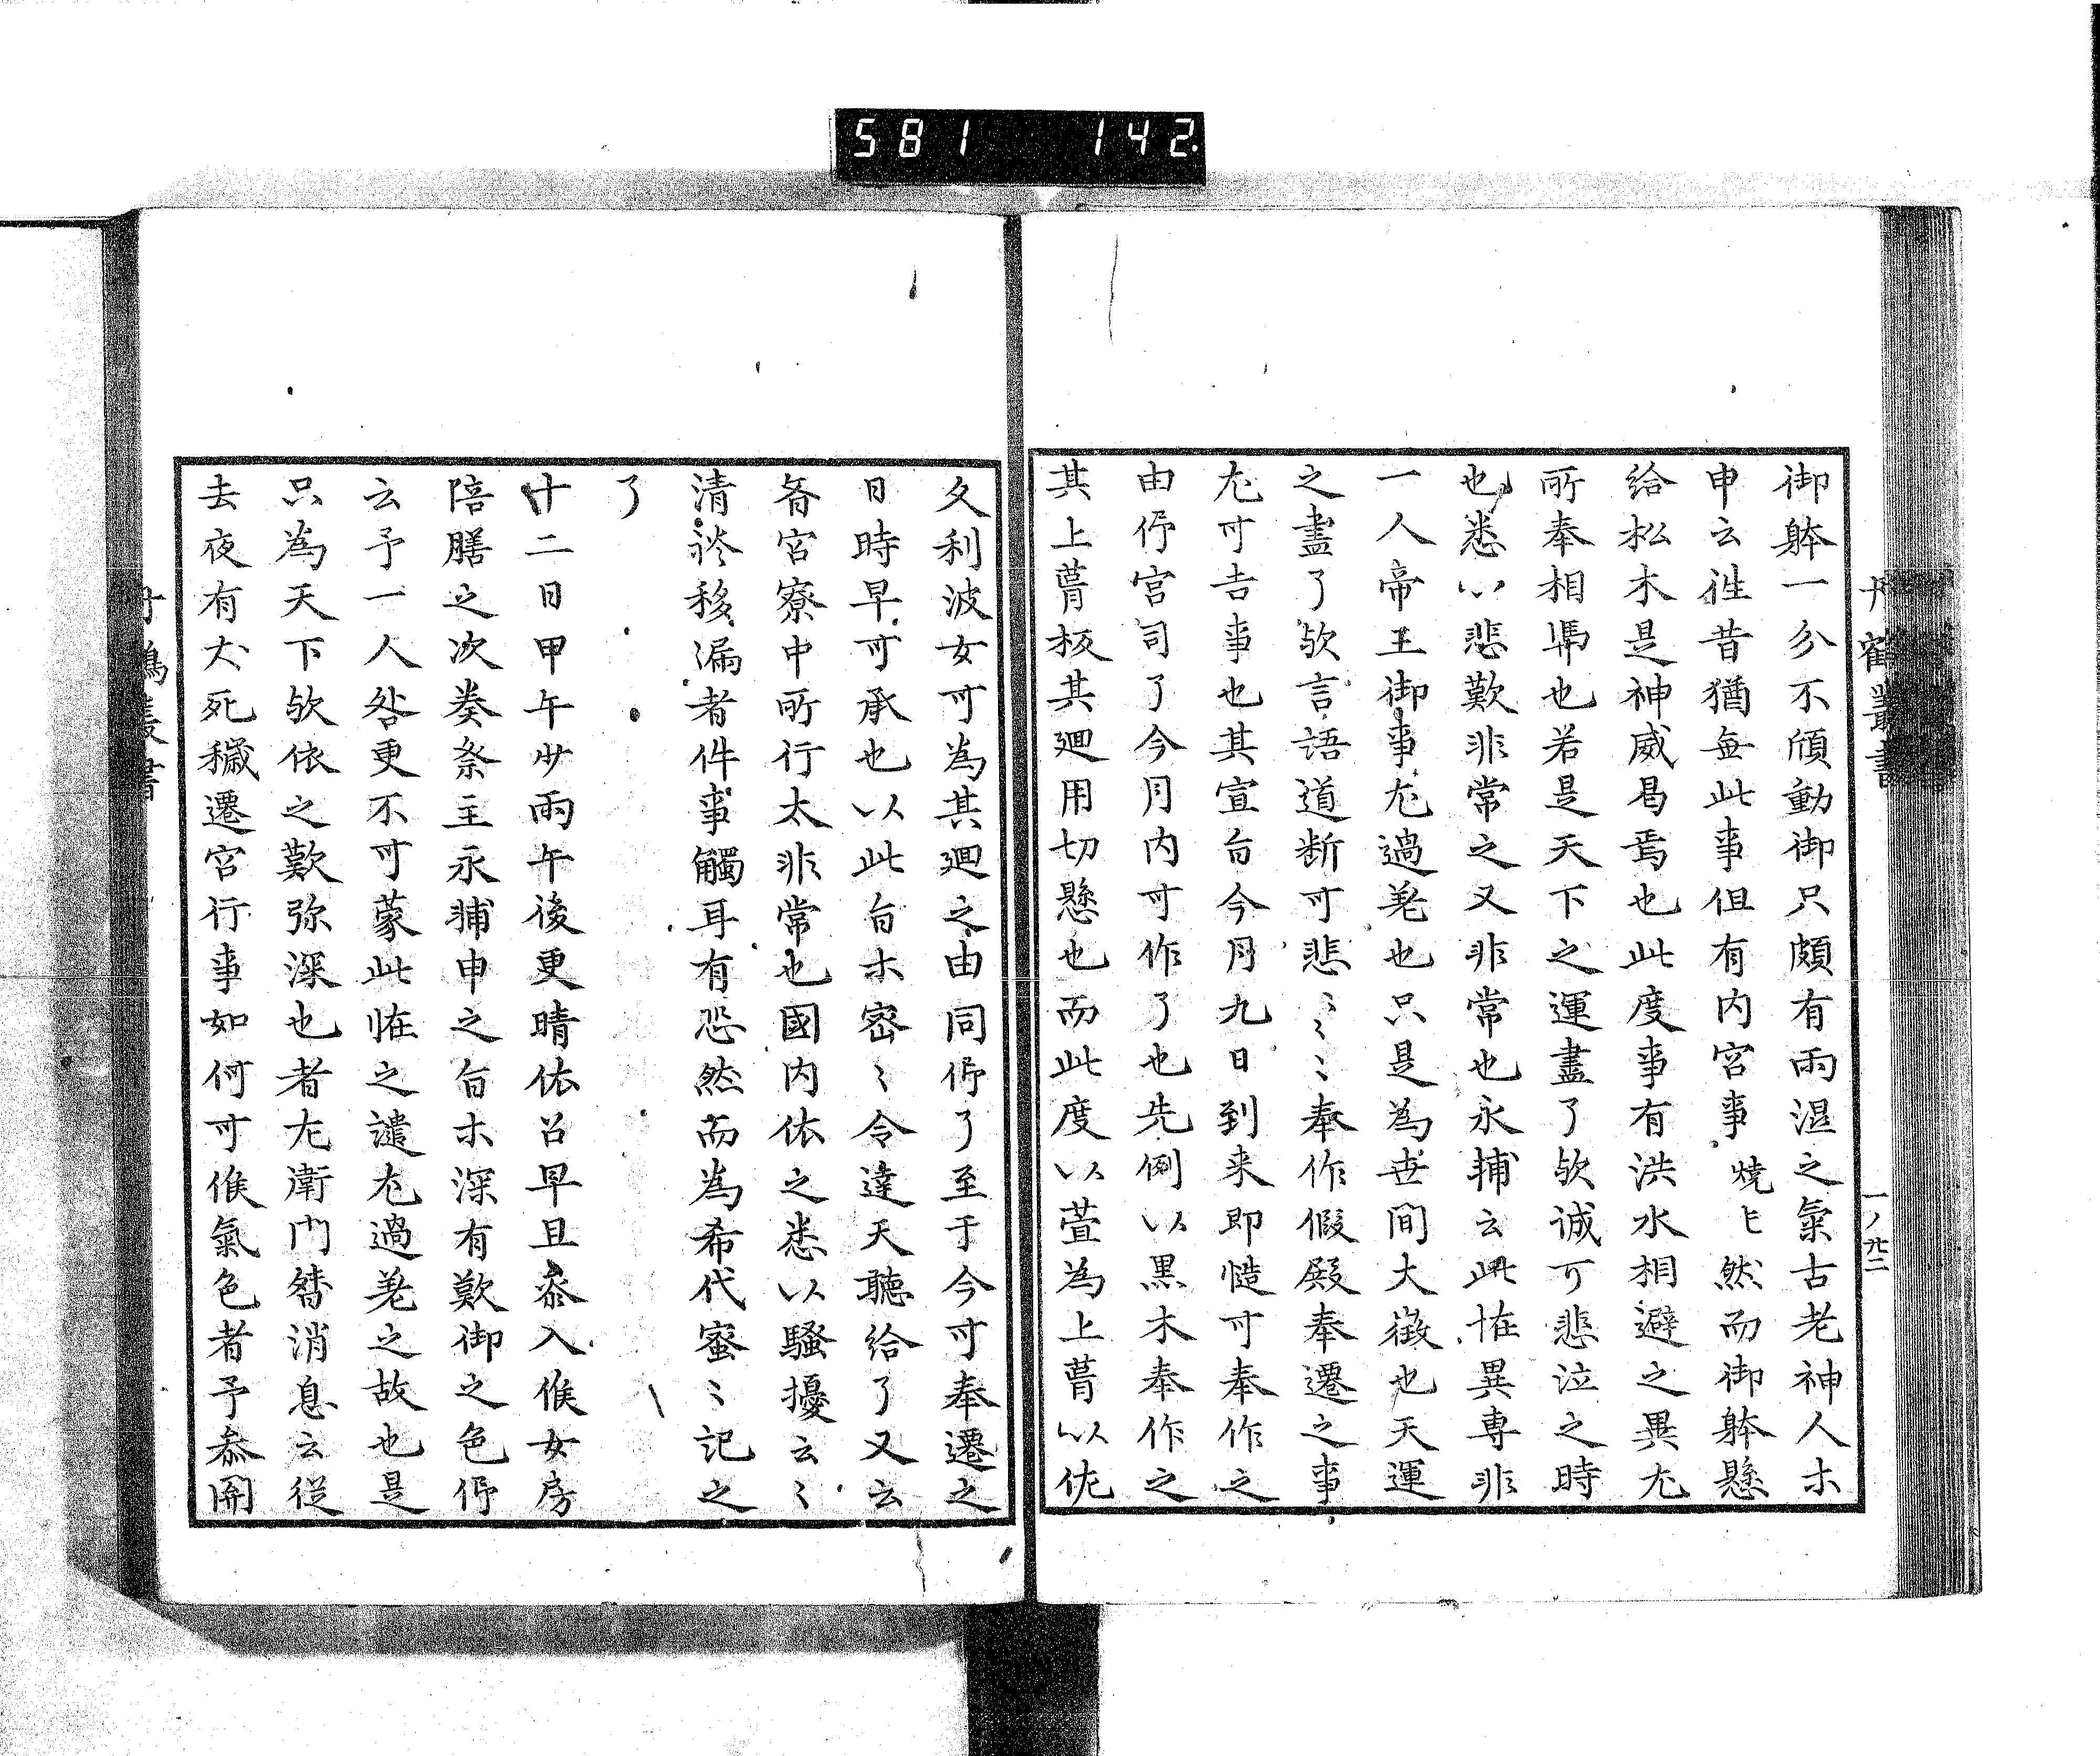 581 142
丹鶴叢書
一ノ廿二
御躰一分不傾動御只頗有雨濕之氣古老神人ホ
申云徃昔猶無此事但有内宮事燒亡然而御躰懸
給松木是神威曷焉也此度事有洪水相避之異尤
所奉相馮也若是天下之運盡了欤誠可悲泣之時
也悉以悲歎非常之又非常也永輔云此恠異専非
一人帝王御事尤過差也只是為世間大徴也天運
之盡了欤言語道断可悲〻〻〻奉作假殿奉遷之事
尤可吉事也其宣旨今月九日到来即慥可奉作之
由仰宮司了今月内可作了也先例以黒木奉作之
其上葺板其廻用切懸也而此度以萱為上葺以佐
久利波女可為其廻之由同仰了至于今可奉遷之
日時早可承也以此旨ホ密〻令達天聴給了又云
斎宮寮中所行太非常也國内依之悉以騒擾云〻
清祢移漏者件事觸耳有恐然而為希代蜜〻記之
了
十二日甲午少雨午後更晴依召早旦参入候女房
陪膳之次奏祭主永輔申之旨ホ深有歎御之色仰
云予一人咎更不可蒙此恠之譴尤過差之故也是
只為天下欤依之歎弥深也者左衛門督消息云従
去夜有犬死穢遷宮行事如何可候氣色者予参関
丹鶴叢書